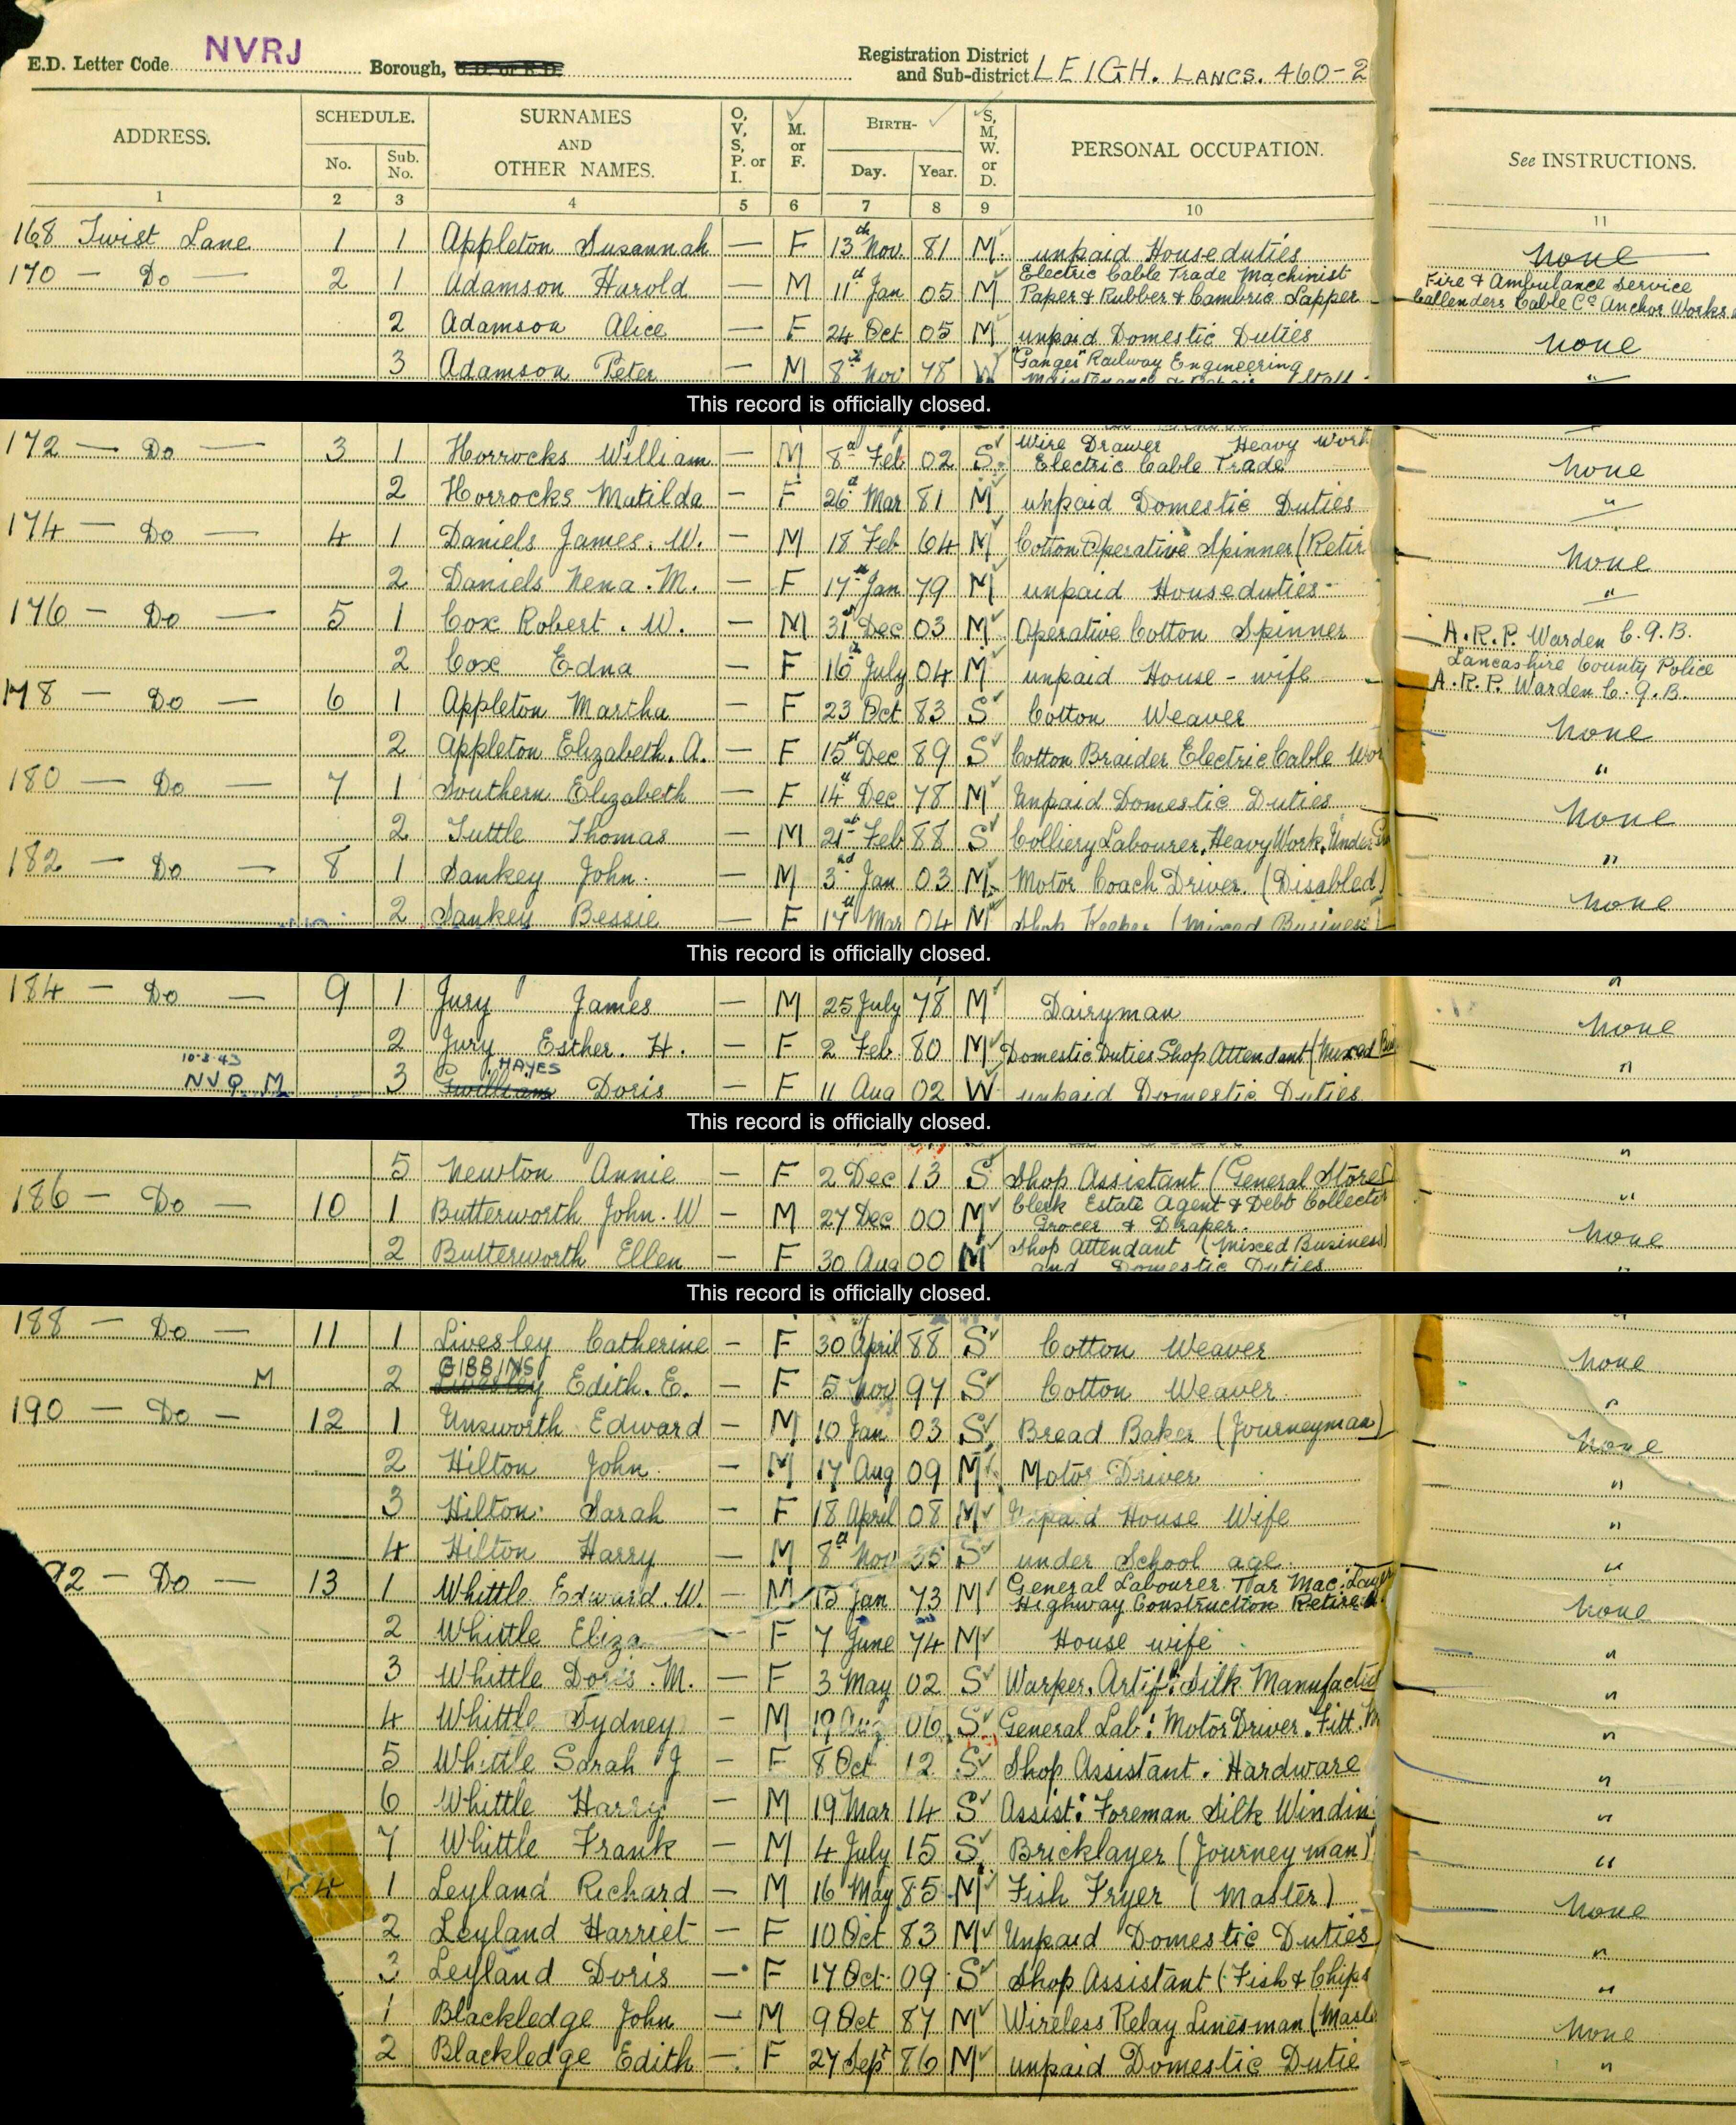 E.D. Letter Code NVRJ Borough, U.D. or R.D. Registration District and Sub-district LEIGH. LANCS. 460-2
ADDRESS. SCHEDULE. No. Sub. No. SURNAMES AND OTHER NAMES. O, V, S, P. or I. M. or F. BIRTH- Day. Year. S, M, W. or D. PERSONAL OCCUPATION. See INSTRUCTIONS.
1 2 3 4 5 6 7 8 9 10 11
168 Twist Lane 1 1 Appleton Susannah — F 13th Nov. 81 M. unpaid House duties none
170 — Do — 2 1 Adamson Harold — M 11th Jan 05 M Electric Cable Trade Machinist Fire & Ambulance Service
Paper & Rubber & Cambric Lapper Callenders Cable Co Anchor Works
2 Adamson Alice — F 24 Oct 05 M unpaid Domestic Duties none
3 Adamson Peter — M 8th Nov 78 W "Ganger" Railway Engineering "
Maintenance & Repair Staff
This record is officially closed.
172 — Do — 3 1 Horrocks William — M 8th Feb 02 S Wire Drawer Heavy Work none
Electric Cable Trade
2 Horrocks Matilda — F 26th Mar 81 M unpaid Domestic Duties "
174 — Do — 4 1 Daniels James. W. — M 18 Feb 64 M Cotton Operative Spinner (Retir none
2 Daniels Nena. M. — F 17th Jan 79 M unpaid House duties "
176 — Do — 5 1 Cox Robert. W. — M 31st Dec 03 M Operative Cotton Spinner A.R.P. Warden C.9.B.
Lancashire County Police
2 Cox Edna — F 16th July 04 M unpaid House-wife A.R.P. Warden C.9.B.
178 — Do — 6 1 Appleton Martha — F 23 Oct 83 S Cotton Weaver none
2 Appleton Elizabeth. A. — F 15th Dec 89 S Cotton Braider Electric Cable Wor "
180 — Do — 7 1 Southern Elizabeth — F 14th Dec 78 M Unpaid Domestic Duties none
2 Tuttle Thomas — M 21st Feb 88 S Colliery Labourer, Heavy Work, Under Gr "
182 — Do — 8 1 Sankey John. — M 3rd Jan 03 M Motor Coach Driver. (Disabled) none
2 Sankey Bessie — F 17th Mar 04 M Shop Keeper (Mixed Business)
This record is officially closed.
"
184 — Do — 9 1 Jury James — M 25 July 78 M Dairyman none
2 Jury Esther. H. — F 2 Feb 80 M Domestic Duties Shop Attendant (Mixed Bus "
10-3-43 HAYES
NVQ M 3 Gwilliam Doris — F 11 Aug 02 W unpaid Domestic Duties "
This record is officially closed.
"
5 Newton Annie — F 2 Dec 13 S Shop Assistant (General Stores) "
186 — Do — 10 1 Butterworth John. W — M 27 Dec 00 M Clerk Estate Agent & Debt Collector none
Grocer & Draper.
2 Butterworth Ellen — F 30 Aug 00 M Shop Attendant (Mixed Business) "
and Domestic Duties
This record is officially closed.
"
188 — Do — 11 1 Livesley Catherine — F 30 April 88 S Cotton Weaver none
GIBBINS
M 2 Livesley Edith. E. — F 5 Nov 97 S Cotton Weaver "
190 — Do — 12 1 Unsworth Edward — M 10 Jan 03 S Bread Baker (Journeyman) none
2 Hilton John — M 17 Aug 09 M Motor Driver "
3 Hilton Sarah — F 18 April 08 M Unpaid House Wife "
4 Hilton Harry — M 8th Nov 35 S under School age. "
92 — Do — 13 1 Whittle Edward. W. — M 15 Jan 73 M General Labourer Tar Mac: Layer none
Highway Construction Retired
2 Whittle Eliza — F 7 June 74 M House wife "
3 Whittle Doris. M. — F 3 May 02 S Warper. Artif: Silk Manufactur "
4 Whittle Sydney — M 19 Aug 06 S General Lab: Motor Driver. Fitt. M "
5 Whittle Sarah J — F 8 Oct 12 S Shop Assistant. Hardware "
6 Whittle Harry — M 19 Mar 14 S Assist: Foreman Silk Windin "
7 Whittle Frank — M 4 July 15 S Bricklayer (Journeyman) "
4 1 Leyland Richard — M 16 May 85 M Fish Fryer (Master) none
2 Leyland Harriet — F 10 Oct 83 M Unpaid Domestic Duties "
3 Leyland Doris — F 17 Oct. 09 S Shop Assistant (Fish & Chips "
1 Blackledge John — M 9 Oct 87 M Wireless Relay Linesman (Mast none
2 Blackledge Edith — F 27 Sept 86 M unpaid Domestic Dutie "